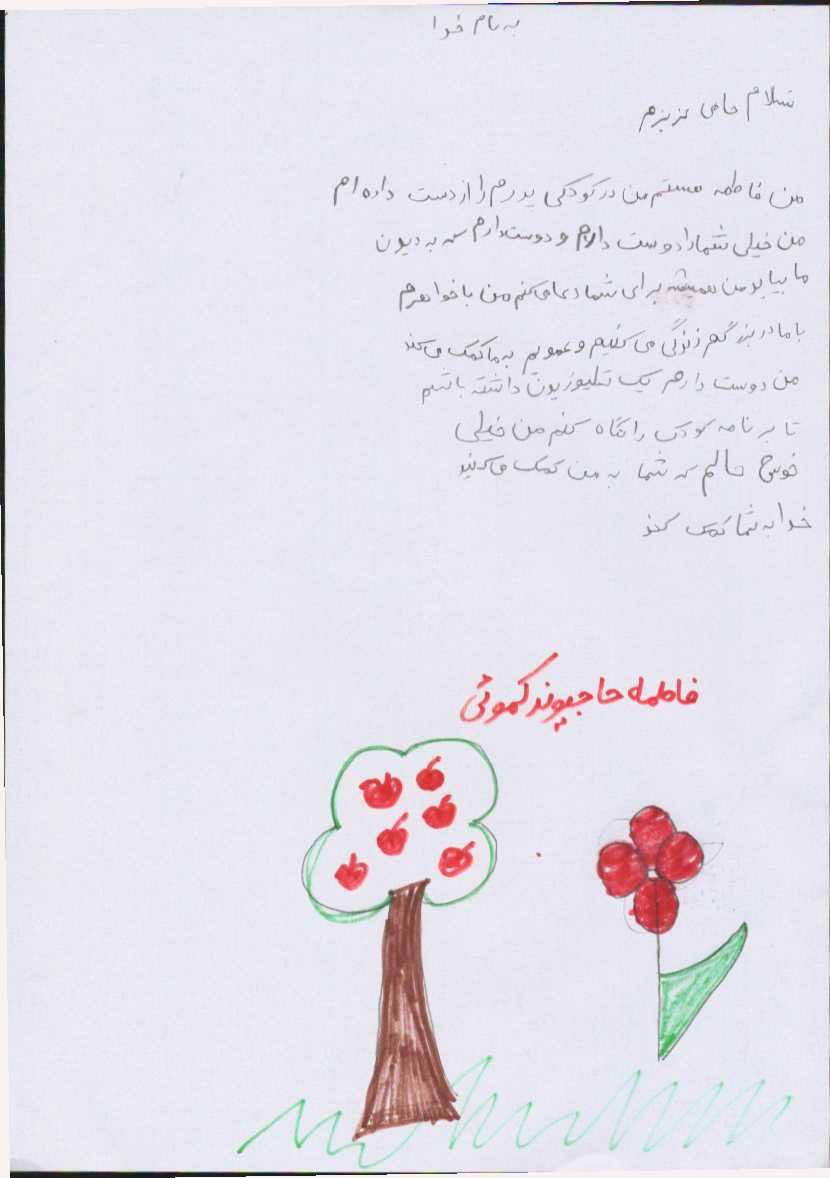 به نام خدا
سلام حامی عزیزم
من فاطمه هستم من در کودکی پدرم را از دست داده ام
من خیلی شما را دوست دارم و دوست دارم که به دیدن
ما بیایید من همیشه برای شما دعا می کنم من با خواهرم
با مادر بزرگم زندگی می کنیم و عمویم به ما کمک می کند
من دوست دارم یک تلیوزیون داشته باشم
تا برنامه کودک را نگاه کنم من خیلی
خوش حالم که شما به من کمک می کنید
خدا به شما کمک کند
فاطمه حاجیوند